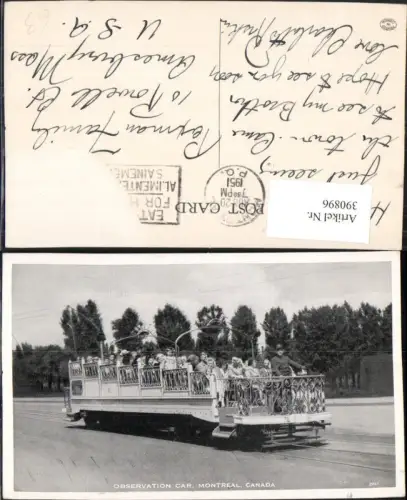 Just seeing
the town. Came
to see my Brother
Hope to see you soon
love Charlotte
Family
10 Powell St.
Amesbury Mass
U.S.A.
POST CARD
P.Q.
1951
EAT
FOR H
ALIMENTE
SAINEME
Artikel Nr.
390896
OBSERVATION CAR, MONTREAL, CANADA